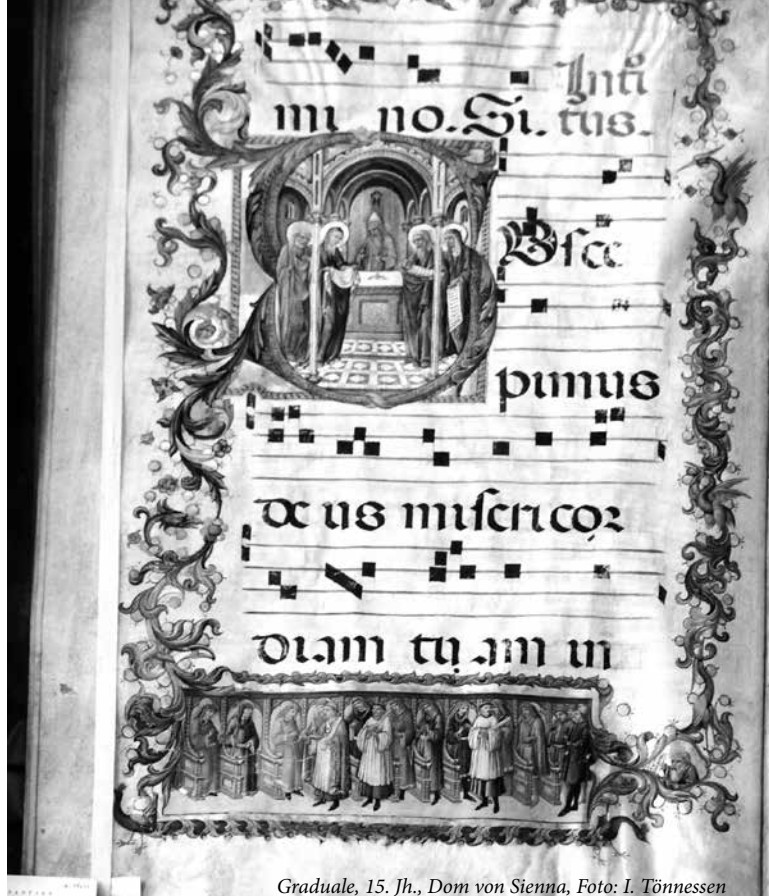 Inti
mi no. Si. tus.
Usce
pimus
de us misericor
diam tu am in
Graduale, 15. Jh., Dom von Sienna, Foto: I. Tönnessen